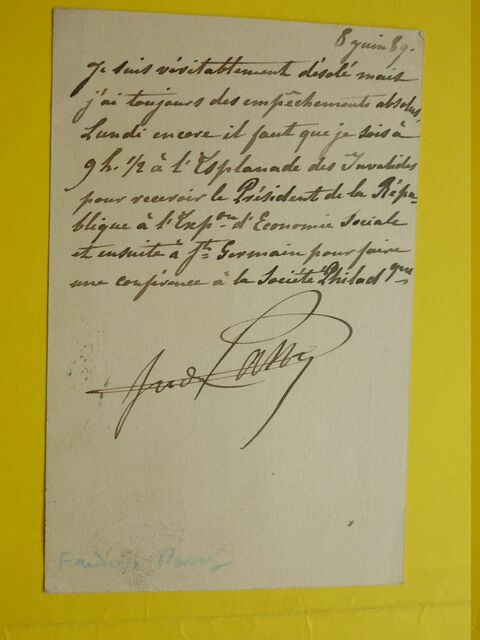 8 juin 89.
Je suis véritablement désolé mais
j'ai toujours des empêchements absolus,
Lundi encore il faut que je sois à
9h. 1/2 à l'Esplanade des Invalides
pour recevoir le Président de la Répu-
blique à l'Expon d'Economie Sociale
et ensuite à St Germain pour faire
une conférence à la Société Philad que
Fred Passy